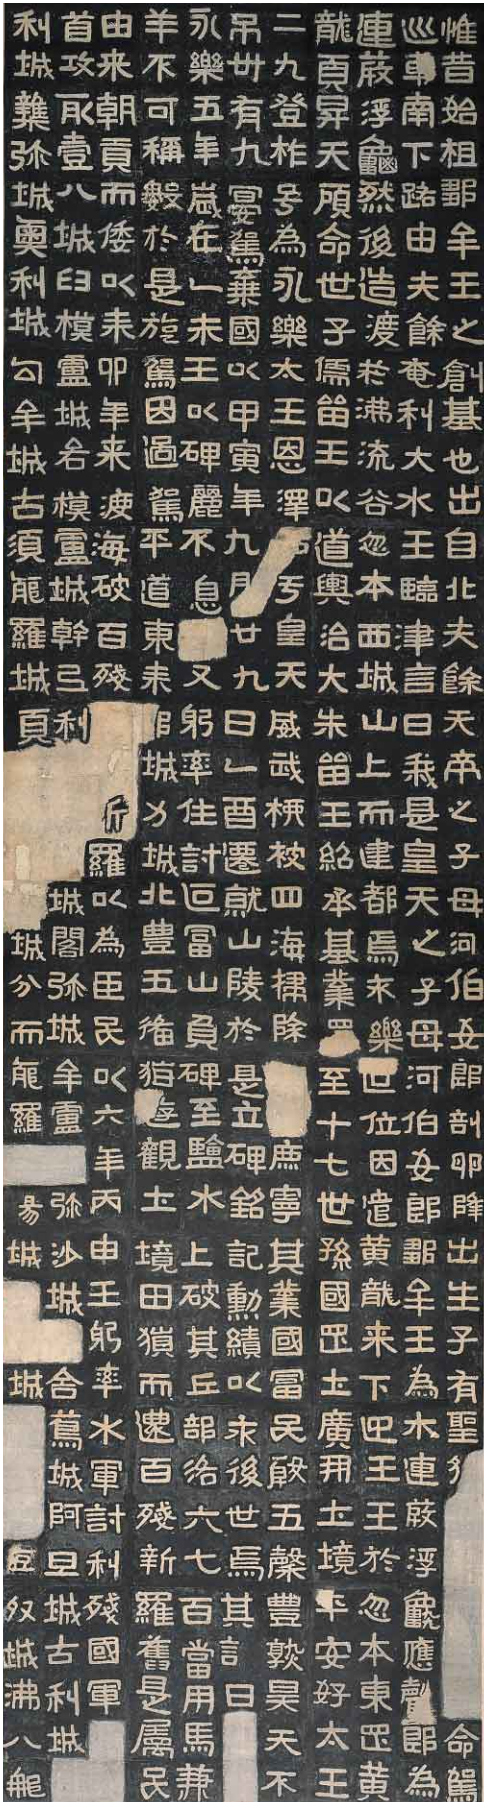 惟昔始祖鄒牟王之創基也出自北夫餘天帝之子母河伯女郎剖卵降出生子有聖命駕
巡車南下路由夫餘奄利大水王臨津言曰我是皇天之子母河伯女郎鄒牟王為木連葭浮龜應聲即為
連葭浮龜然後造渡於沸流谷忽本西城山上而建都焉不樂世位因遣黄龍来下迎王王於忽本東罡黄
龍頁昇天顧命世子儒留王以道興治大朱留王紹承基業至十七世孫國罡上廣開土境平安好太王
二九登祚号為永樂大王恩澤亏皇天威武柳被四海掃除庶寧其業國富民殷五穀豊熟昊天不
弔卅有九宴駕棄國以甲寅年九月廿九日乙酉遷就山陵於是立碑銘記勳績以永後世焉其言曰
永樂五年歲在乙未王以碑麗不息又躬率住討叵富山負碑至鹽水上破其丘部洛六七百當用馬兼
羊不可稱數於是旋駕因過駕平道東来城力城北豊五備猶遊觀土境田獵而還百殘新羅舊是属民
由来朝貢而倭以耒卯年来渡海破百殘斤羅以為臣民以六年丙申王躬率水軍討利殘國軍
首攻取壹八城臼模盧城各模盧城幹弖利城閣弥城牟盧弥沙城舍蔦城阿旦城古利城
利城雜弥城奧利城勾牟城古須能羅城頁城分而能羅昜城城豆奴城沸八那